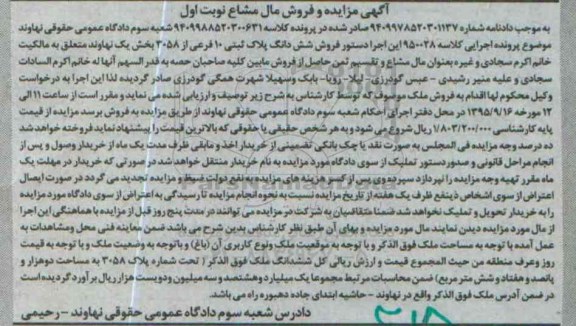 آگهی مزایده و فروش مال مشاع نوبت اول
به موجب دادنامه شماره ۹۴۰۹۹۷۸۵۲۰۳۰۱۱۳۷ صادر شده در پرونده کلاسه ۹۴۰۹۹۸۸۵۲۰۳۰۰۶۳۱ شعبه سوم دادگاه عمومی حقوقی نهاوند
موضوع پرونده اجرایی کلاسه ۹۵۰۰۲۸ این اجرا دستور فروش شش دانگ پلاک ثبتی ۱۰ فرعی از ۳۰۵۸ بخش یک نهاوند متعلق به مالکیت
خانم اکرم سجادی و غیره بعنوان مال مشاع و تقسیم ثمن حاصل از فروش مابین کلیه صاحبان حصه به قدر السهم آنها له خانم اکرم السادات
سجادی و علیه منیر رشیدی - عیس گودرزی - لیلا - رویا - بابک وسهیلا شهرت همگی گودرزی صادر گردیده لذا این اجرا به درخواست
وکیل محکوم لها اقدام به فروش ملک معروف که توسط کارشناس به شرح زیر توصیف و ارزیابی شده می نماید و مقرر است از ساعت ۱۱ الی
۱۲ مورخه ۱۳۹۵/۹/۱۶ در محل دفتر اجرای احکام شعبه سوم دادگاه عمومی حقوقی نهاوند از طریق مزایده به فروش برسد مزایده از قیمت
پایه کارشناسی ۱/۸۰۳/۲۰۰/۰۰۰ ریال شروع می شود و به هر شخص حقیقی یا حقوقی که بالاترین قیمت را پیشنهاد نماید فروخته خواهد شد
ده درصد وجه مزایده فی المجلس به صورت نقد یا چک بانکی تضمینی از خریدار اخذ و مابقی ظرف مدت یک ماه از خریدار وصول و پس از
انجام مراحل قانونی و صدور دستور تملیک از سوی دادگاه مورد مزایده به نام خریدار منتقل خواهد شد در صورتی که خریدار در مهلت یک
ماه مقرر بقیه وجه مزایده را نپردازد سپرده وی پس از کسر هزینه های مزایده به نفع دولت ضبط و مزایده تجدید می گردد در صورت ایصال
اعتراض از سوی اشخاص ذینفع ظرف یک هفته از تاریخ مزایده نسبت به نحوه انجام مزایده تا رسیدگی به اعتراض از سوی دادگاه مورد مزایده
را به خریدار تحویل و تملیک نخواهد شد ضمنا متقاضیان به شرکت در مزایده می توانند در مدت پنج روز قبل از مزایده با هماهنگی این اجرا
از مال مورد مزایده دیدن نمایند مال مورد مزایده و بهای آن طبق نظر کارشناس بدین شرح می باشد ضمن معاینه فنی محل ومشاهدات به
عمل آمده با توجه به مساحت ملک فوق الذکر و با توجه به موقعیت ملک ونوع کاربری آن (باغ) و باتوجه به وضعیت ملک و با توجه به قیمت
روز وعرف منطقه من حیث المجموع قیمت و ارزش ریالی کل ششدانگ ملک فوق الذکر ( تحت شماره پلاک ۳۰۵۸ به مساحت دوهزار و
پانصد و هفتاد و شش متر مربع) ضمن محاسبات مرتبط مجموعا یک میلیارد و هشتصد و سه میلیون ودویست هزار ریال بر آورد گردیده است
در ضمن آدرس ملک فوق الذکر واقع در نهاوند - حاشیه ابتدای جاده دهبوره راه می باشد.
دادرس شعبه سوم دادگاه عمومی حقوقی نهاوند - رحیمی